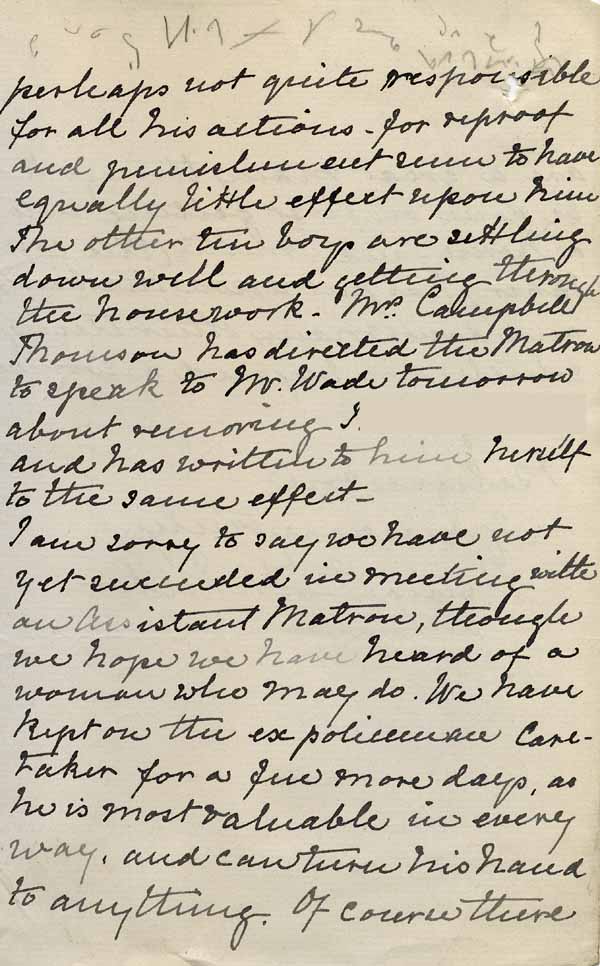 perhaps not quite responsible
for all his actions - for reproof
and punishment seem to have
equally little effect upon him
The other ten boys are settling
down well and getting through
the housework - Mrs. Campbell
Thomson has directed the Matron
to speak to Mr. Wade tomorrow
about removing J.
and has written to him herself
to the same effect -
I am sorry to say we have not
yet succeeded in meeting with
an Assistant Matron, though
we hope we have heard of a
woman who may do. We have
kept on the ex policeman Care-
taker for a few more days, as
he is most valuable in every
way, and can turn his hand
to anything. Of course there